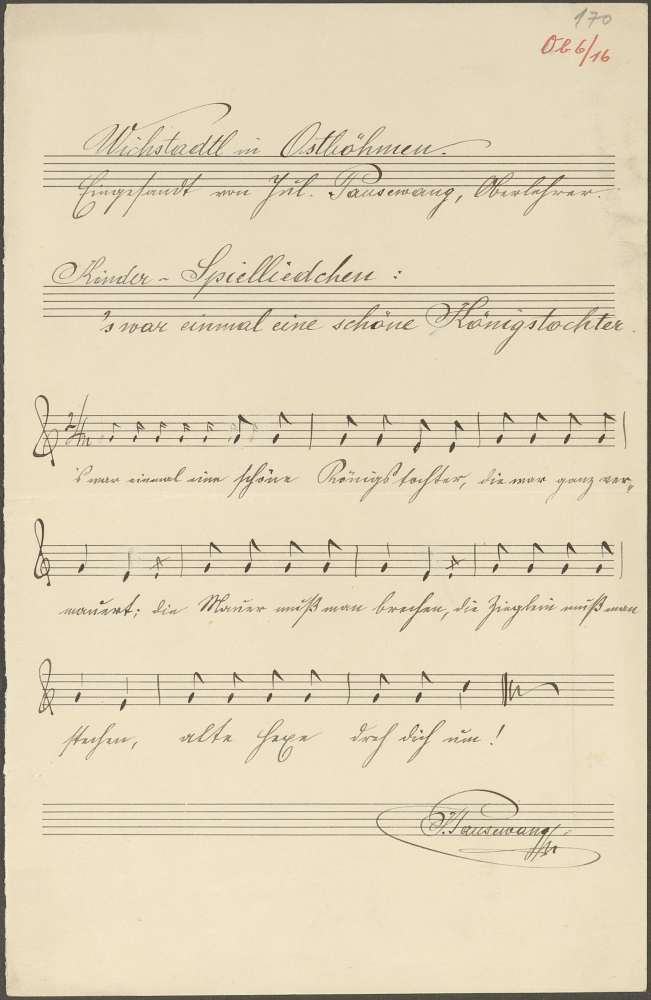 170
Ob 6/16
Wichstadtl in Ostböhmen.
Eingesandt von Jul. Pausewang, Oberlehrer.
Kinder - Spielliedchen :
's war einmal eine schöne Königstochter.
2/4
's war einmal eine schöne Königstochter, die war ganz ver-
mauert; die Mauer muß man brechen, die Zieglein muß man
stechen, alte Hexe dreh dich um!
J. Pausewang